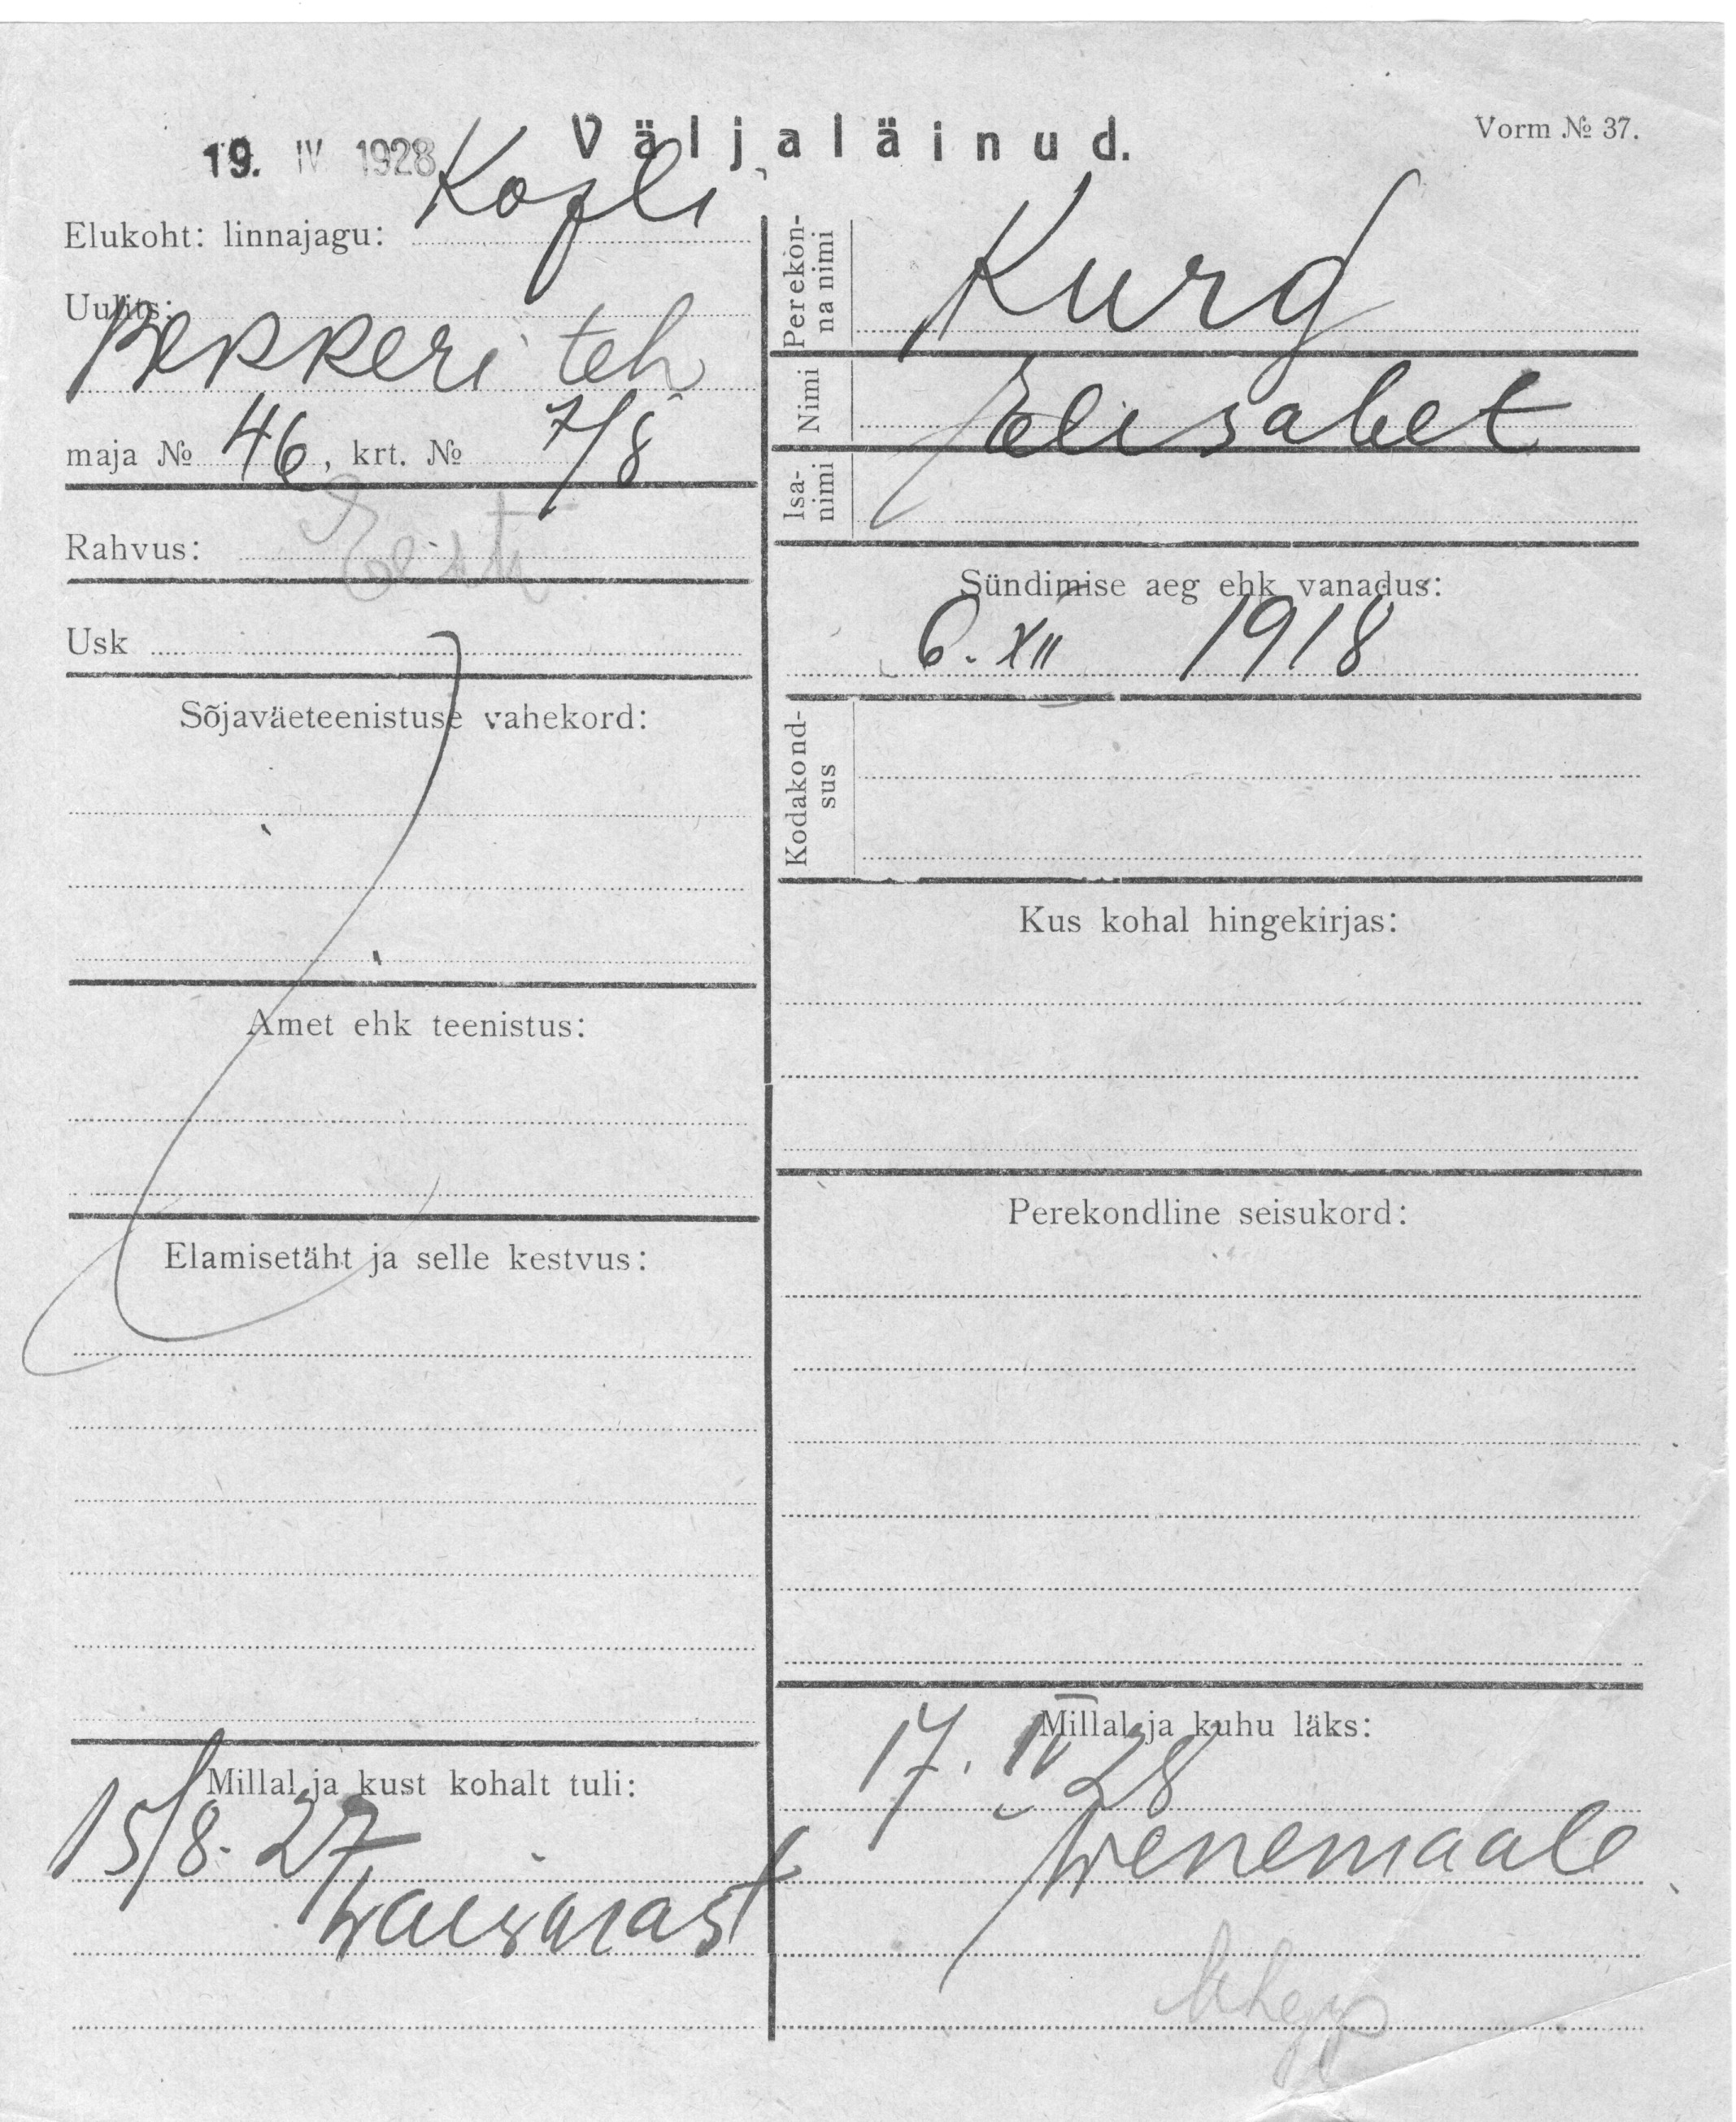 Väljaläinud.
Vorm № 37.
19. IV 1928
Elukoht: linnajagu: Kopli
Uulits:
Bekkeri teh
maja № 46, krt. № 7/8
Rahvus: Eesti
Usk
Sõjaväeteenistuse vahekord:
Amet ehk teenistus:
Elamisetäht ja selle kestvus:
Millal ja kust kohalt tuli:
15/8. 27
Perekon-
na nimi
Kurg
Nimi
Elisabet
Isa-
nimi
Sündimise aeg ehk vanadus:
6. XII 1918
Kodakond-
sus
Kus kohal hingekirjas:
Perekondline seisukord:
Millal ja kuhu läks:
17. IV 28
Wenemaale